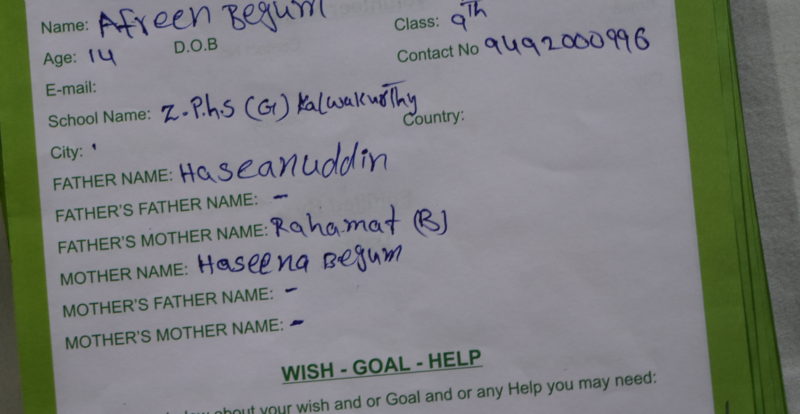 Name: Afreen Begum
Class: 9Th
Age: 14 D.O.B
Contact No 9492000996
E-mail:
School Name: Z.P.h.S (G) Kalwakurthy
Country:
City:
FATHER NAME: Haseanuddin
FATHER'S FATHER NAME: -
FATHER'S MOTHER NAME: Rahamat (B)
MOTHER NAME: Haseena Begum
MOTHER'S FATHER NAME: -
MOTHER'S MOTHER NAME: -
WISH - GOAL - HELP
about your wish and or Goal and or any Help you may need: